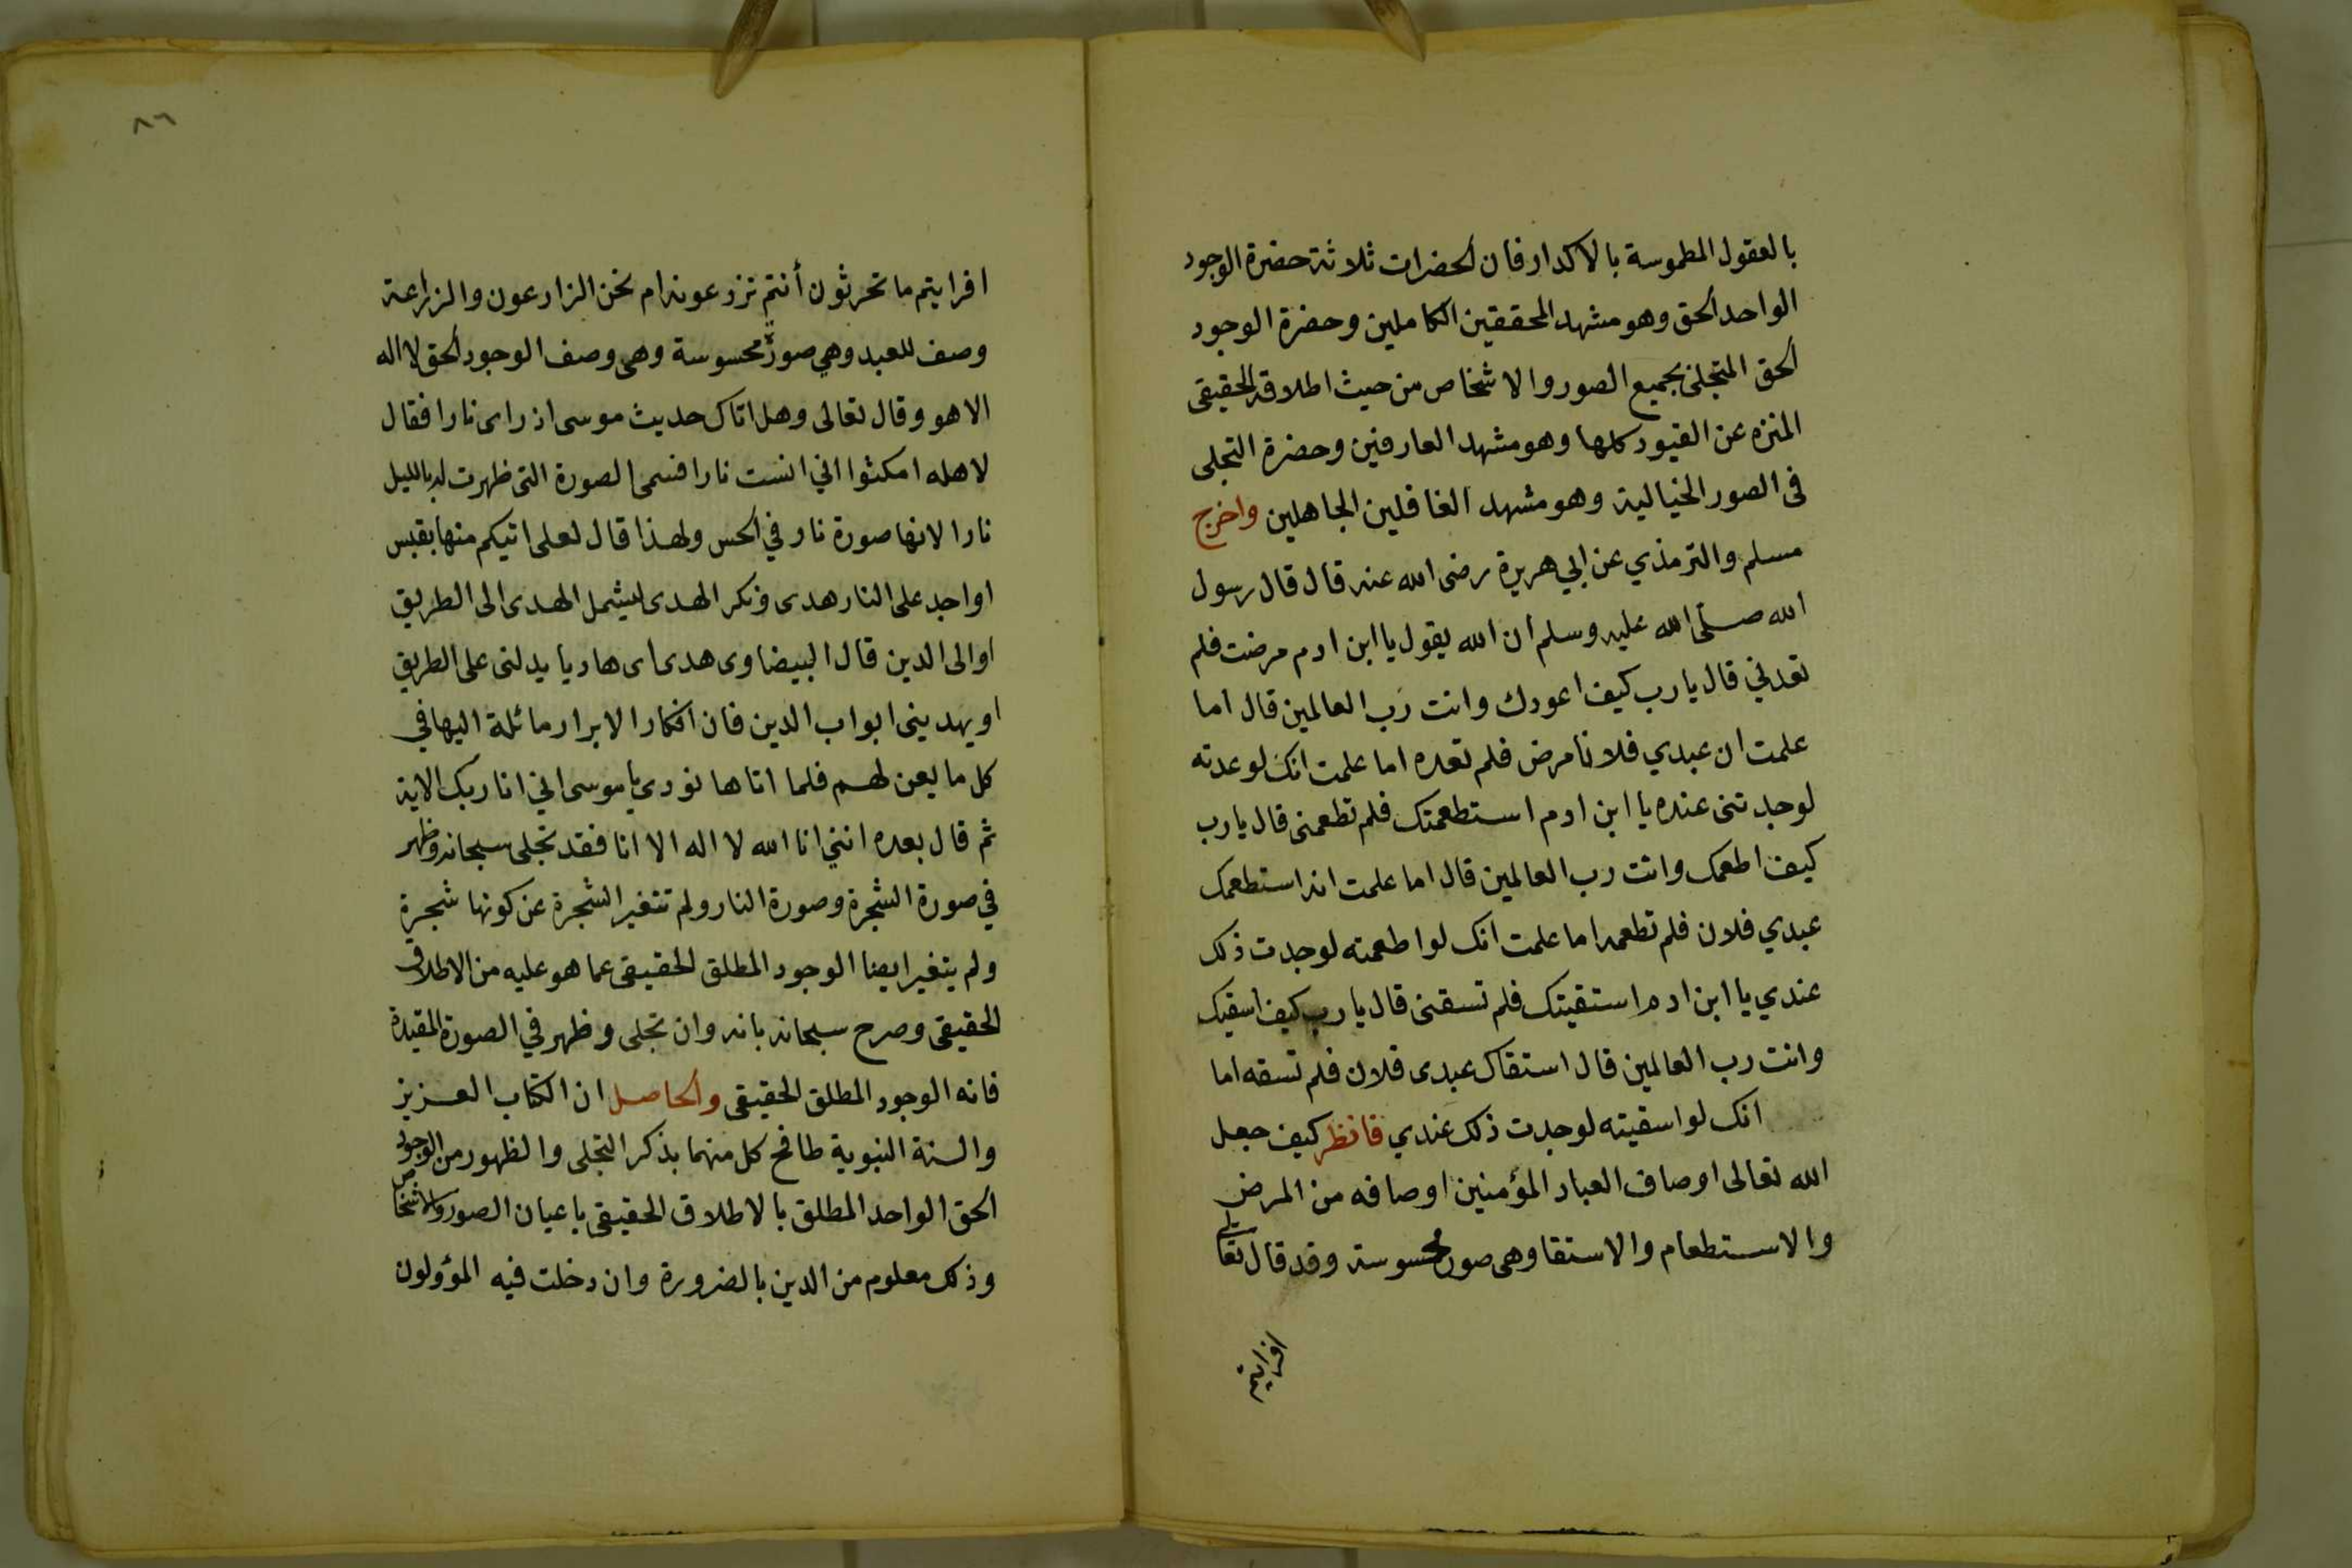 بالعقول المطموسة بالاكدار فان الحضرات ثلاثة حضرة الوجود
الواحد الحق وهو مشهد المحققين الكاملين وحضرة الوجود
الحق المتجلى بجميع الصور والاشخاص من حيث اطلاقه الحقيقى
المنزه عن القيود كلها وهو مشهد العارفين وحضرة التجلى
فى الصور الخيالية وهو مشهد الغافلين الجاهلين واخرج
مسلم والترمذي عن ابي هريرة رضى الله عنه قال قال رسول
الله صلى الله عليه وسلم ان الله يقول يا ابن ادم مرضت فلم
تعدني قال يا رب كيف اعودك وانت رب العالمين قال اما
علمت ان عبدي فلانا مرض فلم تعده اما علمت انك لو عدته
لوجدتنى عنده يا ابن ادم استطعمتك فلم تطعمنى قال يا رب
كيف اطعمك وانت رب العالمين قال اما علمت انه استطعمك
عبدي فلان فلم تطعمه اما علمت انك لو اطعمته لوجدت ذلك
عندي يا ابن ادم استقيتك فلم تسقنى قال يا رب كيف اسقيك
وانت رب العالمين قال استقاك عبدى فلان فلم تسقه اما
انك لو اسقيته لوجدت ذلك عندي فانظر كيف جعل
الله تعالى اوصاف العباد المؤمنين اوصافه من المرض
والاستطعام والاستقا وهى صور محسوسة وقد قال تعالى
افرايتم
٨٦
افرايتم ما تحرثون أنتم تزرعونه ام نحن الزارعون والزراعة
وصف للعبد وهي صورة محسوسة وهى وصف الوجود الحق لا اله
الا هو وقال تعالى وهل اتاك حديث موسى اذ راى نارا فقال
لاهله امكثوا اني انست نارا فسمى الصورة التى ظهرت له بالليل
نارا لانها صورة نار في الحس ولهذا قال لعلى اتيكم منها بقبس
او اجد على النار هدى ونكر الهدى ليشمل الهدى الى الطريق
او الى الدين قال البيضاوى هدى اى هاديا يدلنى على الطريق
او يهدينى ابواب الدين فان افكار الابرار مائلة اليها في
كل ما يعن لهم فلما اتاها نودى يا موسى اني انا ربك الاية
ثم قال بعده انني انا الله لا اله الا انا فقد تجلى سبحانه وظهر
في صورة الشجرة وصورة النار ولم تتغير الشجرة عن كونها شجرة
ولم يتغير ايضا الوجود المطلق الحقيقى عما هو عليه من الاطلاق
الحقيقى وصرح سبحانه بانه وان تجلى وظهر في الصورة المقيدة
فانه الوجود المطلق الحقيقى والحاصل ان الكتاب العزيز
والسنة النبوية طافح كل منهما بذكر التجلى والظهور من الوجود
الحق الواحد المطلق بالاطلاق الحقيقى باعيان الصور والاشخاص
وذلك معلوم من الدين بالضرورة وان دخلت فيه المؤولون